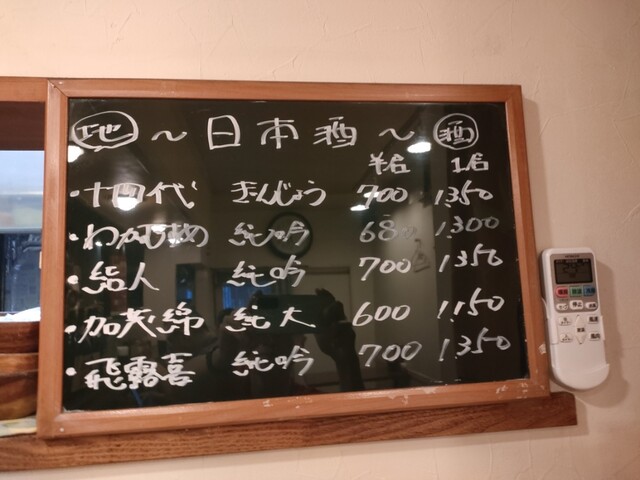 地 ~ 日本酒 ~ 酒
半合 1合
・十四代 ぎんじょう 700 1350
・わかむすめ 純吟 680 1300
・結人 純吟 700 1350
・加茂錦 純大 600 1150
・飛露喜 純吟 700 1350